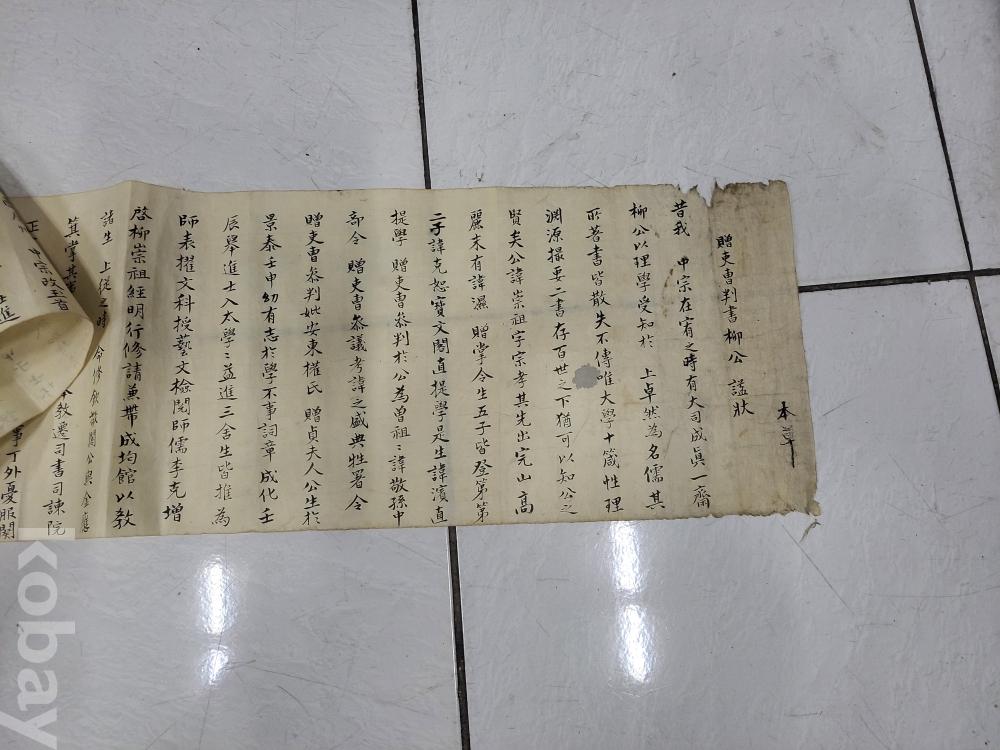 本草
贈吏曹判書柳公 諡狀
昔我 中宗在宥之時有大司成眞一齋
柳公以理學受知於 上卓然為名儒其
所著書皆散失不傳唯大學十箴性理
淵源撮要二書存百世之下猶可以知公之
賢矣公諱崇祖字宗孝其先出完山高
麗末有諱濕 贈掌令生五子皆登第第
二子諱克恕寶文閣直提學是生諱濱直
提學 贈吏曹叅判於公為曾祖〻諱敬孫中
部令 贈吏曹叅議考諱之盛典牲署令
贈吏曹叅判妣安東權氏 贈貞夫人公生於
景泰壬申幼有志於學不事詞章成化壬
辰舉進士入太學〻益進三舍生皆推為
師表擢文科授藝文檢閱師儒李克增
啓柳崇祖經明行修請兼帶成均館以教
諸生 上從之時 令修 公與金應
箕掌其事 本教遷司書司諫院
正 中宗改玉首 事丁外憂服闋
進
kobay